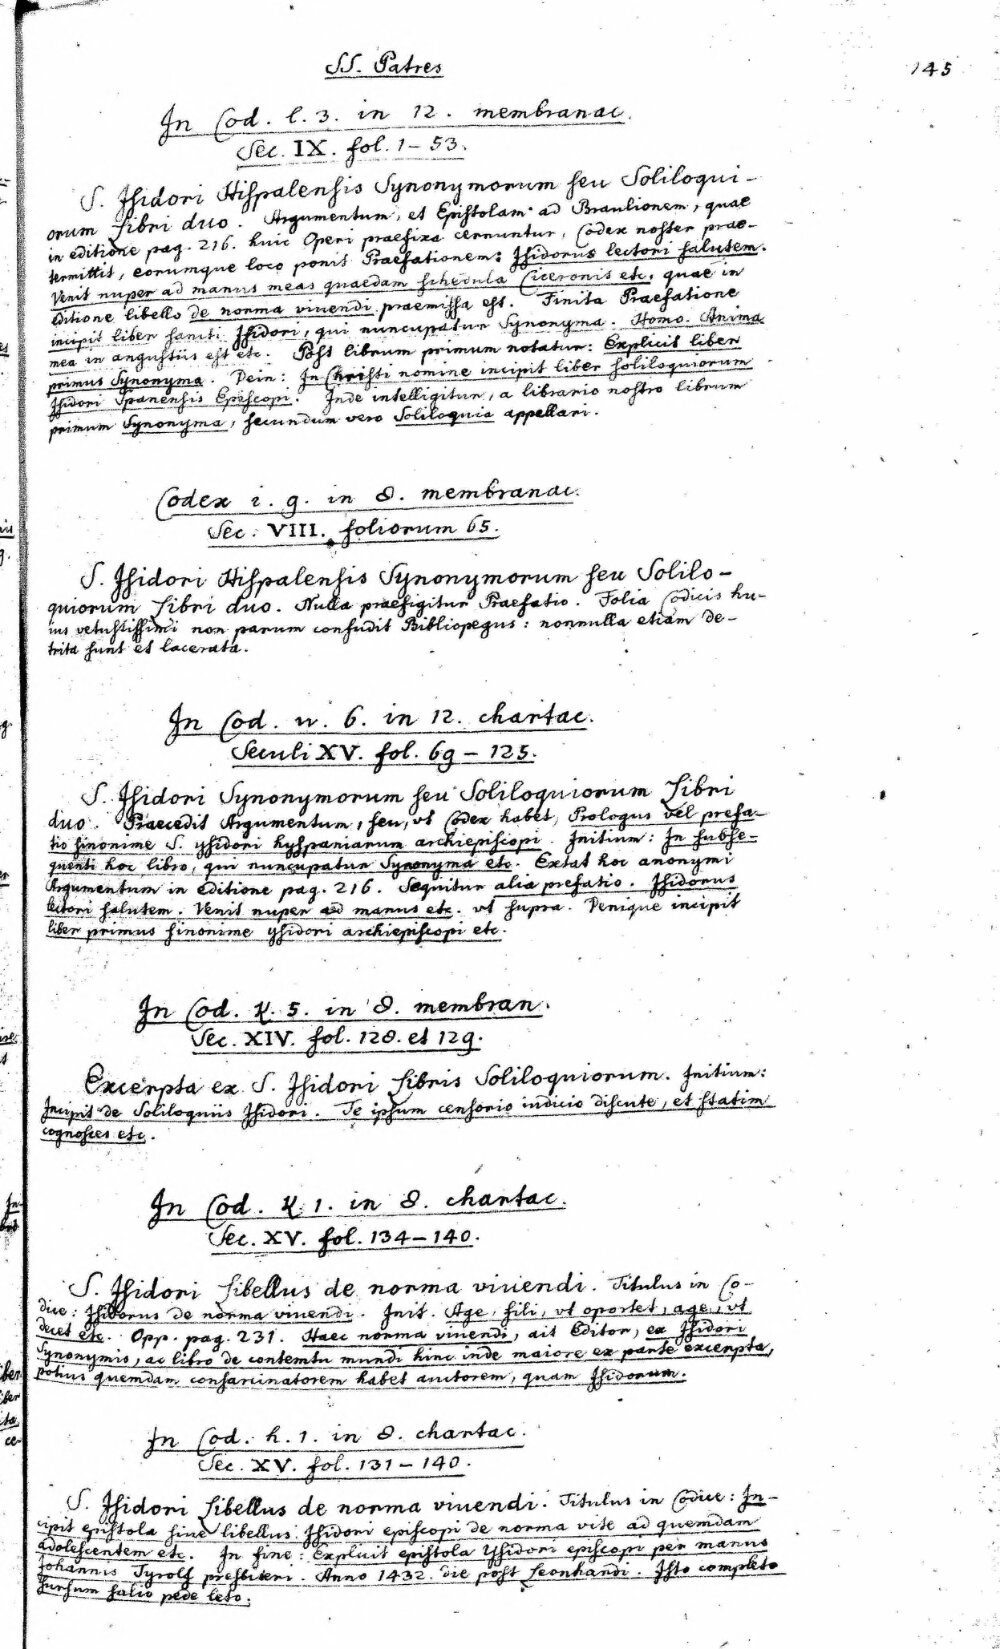 SS. Patres
145
In Cod. l. 3. in 12. membranac.
Sec. IX. fol. 1-53.
S. Isidori Hispalensis Synonymorum seu Soliloqui-
orum Libri duo. Argumentum, et Epistolam ad Braulionem, quae
in editione pag. 216. huic Operi praefixa cernuntur, Codex noster prae-
termittit, eorumque loco ponit Praefationem: Isidorus lectori salutem.
Venit nuper ad manus meas quaedam schedula Ciceronis etc. quae in
editione libello de norma vivendi praemissa est. Finita Praefatione
incipit liber sancti Isidori, qui nuncupatur Synonyma. Homo. Anima
mea in angustiis est etc. Post librum primum notatur: Explicit liber
primus Synonyma. Dein: In Christi nomine incipit liber soliloquiorum
Isidori Spanensis Episcopi. Inde intelligitur, a librario nostro librum
primum Synonyma, secundum vero Soliloquia appellari.
Codex i. 9. in 8. membranac.
Sec. VIII. foliorum 65.
S. Isidori Hispalensis Synonymorum seu Solilo-
quiorum Libri duo. Nulla praefigitur Praefatio. Folia Codicis hu-
ius vetustissimi non parum confudit Bibliopegus: nonnulla etiam de-
trita sunt et lacerata.
In Cod. w. 6. in 12. chartac.
Seculi XV. fol. 69-125.
S. Isidori Synonymorum seu Soliloquiorum Libri
duo. Praecedit Argumentum, seu, vt Codex habet, Prologus vel prefa-
tio sinonime S. ysidori hyspanianum archiepiscopi. Initium: In subse-
quenti hoc libro, qui nuncupatur Synonyma etc. Extat hoc anonymi
Argumentum in editione pag. 216. Sequitur alia prefatio. Isidorus
lectori salutem. Venit nuper ad manus etc. vt supra. Denique incipit
liber primus sinonime ysidori archiepiscopi etc.
In Cod. K. 5. in 8. membran.
Sec. XIV. fol. 128. et 129.
Excerpta ex S. Isidori Libris Soliloquiorum. Initium:
Incipit de Soliloquiis Isidori. Te ipsum censorio iudicio discute, et statim
cognosces etc.
In Cod. K. 1. in 8. chartac.
Sec. XV. fol. 134-140.
S. Isidori Libellus de norma viuendi. Titulus in Co-
dice: Isidorus de norma viuendi. Init. Age, fili, vt oportet, age, vt
decet etc. Opp. pag. 231. Haec norma viuendi, ait Editor, ex Isidori
Synonymis, ac libro de contemtu mundi hinc inde maiore ex parte excerpta,
potius quemdam consarcinatorem habet auctorem, quam Isidorum.
In Cod. h. 1. in 8. chartac.
Sec. XV. fol. 131-140.
S. Isidori Libellus de norma viuendi. Titulus in Codice: In-
cipit epistola siue libellus Isidori episcopi de norma vite ad quemdam
adolescentem etc. In fine: Explicit epistola Ysidori episcopi per manus
Johannis Tyrolf presbiteri. Anno 1432. die post Leonhardi. Isto completo
sursum salio pede leto.